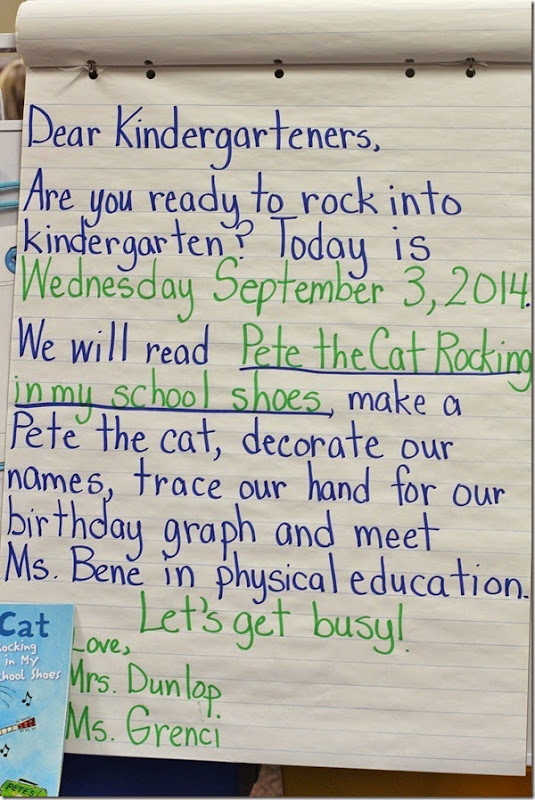 Dear Kindergarteners,
Are you ready to rock into
kindergarten? Today is
Wednesday September 3, 2014.
We will read Pete the Cat Rocking
in my school shoes, make a
Pete the cat, decorate our
names, trace our hand for our
birthday graph and meet
Ms. Bene in physical education.
Let's get busy!
Love,
Mrs. Dunlop
Ms. Grenci
Cat
Rocking
in My
School Shoes
PETE'S